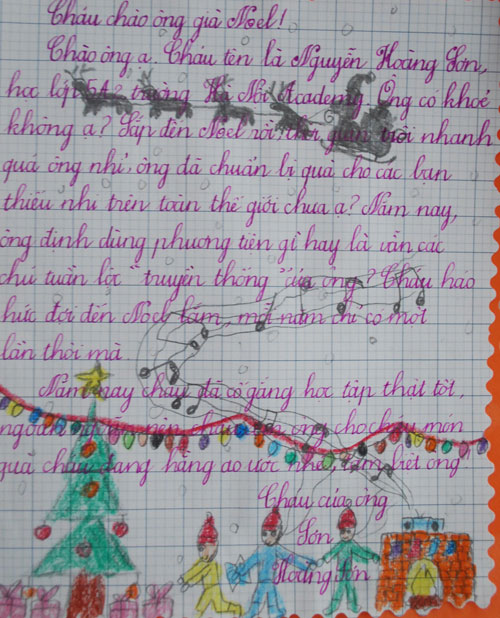 Cháu chào ông già Noel!
Chào ông ạ. Cháu tên là Nguyễn Hoàng Sơn,
học lớp 5A2 trường Hà Nội Academy. Ông có khoẻ
không ạ? Sắp đến Noel rồi, thời gian trôi nhanh
quá ông nhỉ, ông đã chuẩn bị quà cho các bạn
thiếu nhi trên toàn thế giới chưa ạ? Năm nay,
ông định dùng phương tiện gì hay là vẫn các
chú tuần lộc "truyền thống" của ông? Cháu háo
hức đợi đến Noel lắm, mỗi năm chỉ có một
lần thôi mà.
Năm nay cháu đã cố gắng học tập thật tốt,
ngoan nên ông cho cháu món
quà cháu đang hằng ao ước nhé. Tạm biệt ông.
Cháu của ông
Sơn
Hoàng Sơn